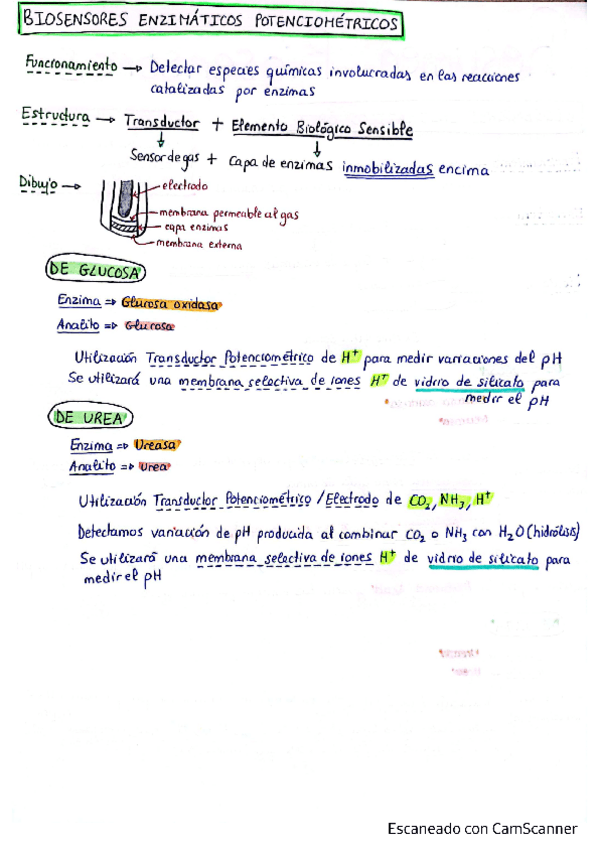 BIOSENSORES ENZIMÁTICOS POTENCIOMÉTRICOS
Funcionamiento → Detectar especies químicas involucradas en las reacciones
catalizadas por enzimas
Estructura → Transductor + Elemento Biológico Sensible
Sensor de gas + Capa de enzimas inmobilizadas encima
Dibujo →
electrodo
membrana permeable al gas
capa enzimas
membrana externa
DE GLUCOSA
Enzima ⇒ Glucosa oxidasa
Analito ⇒ Glucosa
Utilización Transductor Potenciométrico de H⁺ para medir variaciones del pH
Se utilizará una membrana selectiva de iones H⁺ de vidrio de silicato para
medir el pH
DE UREA
Enzima ⇒ Ureasa
Analito ⇒ Urea
Utilización Transductor Potenciométrico / Electrodo de CO₂, NH₃, H⁺
Detectamos variación de pH producida al combinar CO₂ o NH₃ con H₂O (hidrólisis)
Se utilizará una membrana selectiva de iones H⁺ de vidrio de silicato para
medir el pH
Escaneado con CamScanner